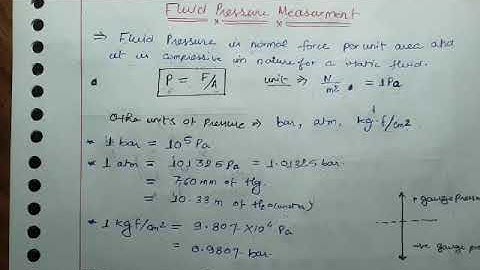 Fluid Pressure Measurment
⇒ Fluid Pressure is normal force per unit area and
it is compressive in nature for a static fluid.
P = F/A unit ⇒ N/m² = 1 Pa
Other units of Pressure ⇒ bar, atm, kg-f/cm²
* 1 bar = 10⁵ Pa
* 1 atm = 101325 Pa = 1.01325 bar
= 760 mm of Hg.
= 10.33 m of H₂O (water)
* 1 kgf/cm² = 9.807 × 10⁴ Pa
= 0.9807 bar
+ gauge pressu
-ve gauge pre